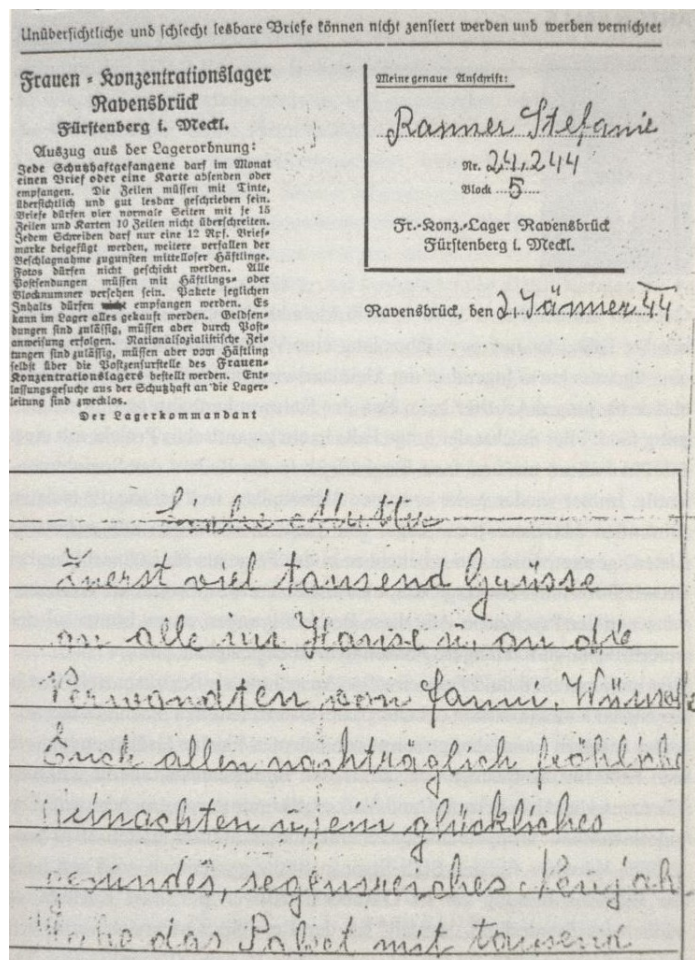 Unübersichtliche und schlecht lesbare Briefe können nicht zensiert werden und werden vernichtet
Frauen-Konzentrationslager
Ravensbrück
Fürstenberg i. Meckl.
Auszug aus der Lagerordnung:
Jede Schutzhaftgefangene darf im Monat
einen Brief oder eine Karte absenden oder
empfangen. Die Zeilen müssen mit Tinte,
übersichtlich und gut lesbar geschrieben sein.
Briefe dürfen vier normale Seiten mit je 15
Zeilen und Karten 10 Zeilen nicht überschreiten.
Jedem Schreiben darf nur eine 12 Rpf. Brief-
marke beigefügt werden, weitere verfallen der
Beschlagnahme zugunsten mittelloser Häftlinge.
Fotos dürfen nicht geschickt werden. Alle
Postsendungen müssen mit Häftlings- oder
Blocknummer versehen sein. Pakete jeglichen
Inhalts dürfen empfangen werden. Es
kann im Lager alles gekauft werden. Geldsen-
dungen sind zulässig, müssen aber durch Post-
anweisung erfolgen. Nationalsozialistische Zei-
tungen sind zulässig, müssen aber vom Häftling
selbst über die Postzensurstelle des Frauen-
Konzentrationslagers bestellt werden. Ent-
lassungsgesuche aus der Schutzhaft an die Lager-
leitung sind zwecklos.
Der Lagerkommandant
Meine genaue Anschrift:
Ranner Stefanie
Nr. 24.244
Block 5
Fr.-Konz.-Lager Ravensbrück
Fürstenberg i. Meckl.
Ravensbrück, den 2. Jänner 44
Liebe Mutter
Zuerst viel tausend Grüsse
an alle im Hause u. an die
Verwandten, von Fanni. Wünsche
Euch allen nachträglich fröhliche
glückliches
gesundes, segensreiches Neujahr
Habe das Paket mit tausend